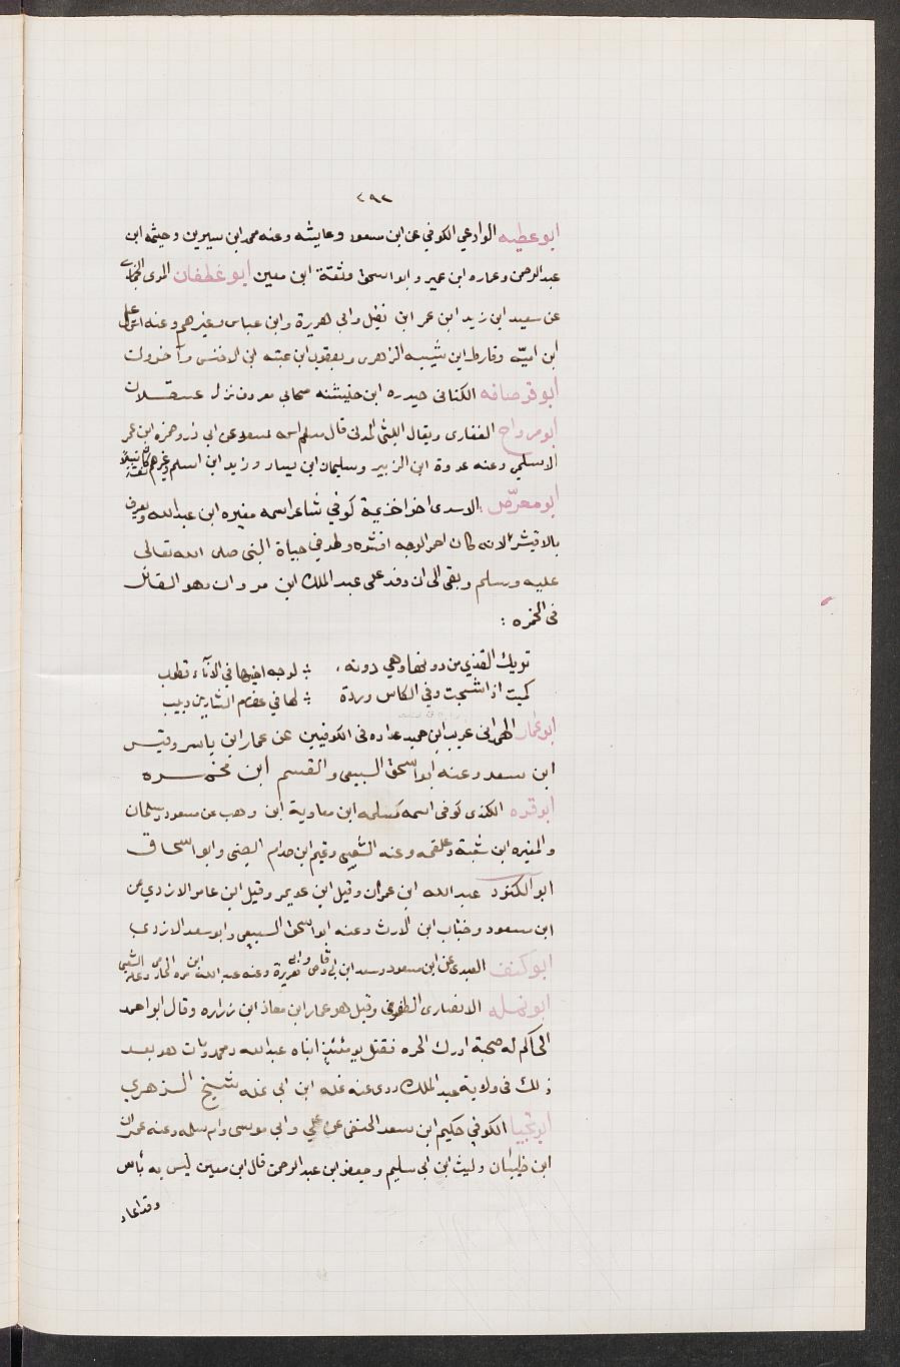 ٢٩٢
ابو عطيه الوادعي الكوفي عن ابن مسعود وعايشه وعنه محمد ابن سيرين وخيثمة ابن
عبد الرحمن وعماره ابن عمير وابو اسحق وثقة ابن معين ابو غطفان المرى الحجازي
عن سعيد ابن زيد ابن عمر ابن نفيل وابى هريرة وابن عباس وغيرهم وعنه اسمعيل
ابن اميّه وقارط ابن شيبه الزهرى ويعقوب ابن عتبه ابن الاخنس وآخرون
ابو قرصافه الكنانى حيدره ابن خيشنه صحابى معروف نزل عسقـلان
ابو مرواح الغفارى ويقال الليثى المدنى قال مسلم اسمه سعد عن ابى ذر وحمزه ابن عمر
الاسلمي وعنه عروة ابن الزبير وسليمان ابن يسار وزيد ابن اسلم وغيرهم
ابو معرّض الاسدى اخو خزيمة كوفي شاعر اسمه مغيره ابن عبد الله ويعرف
بالاقيشر لانه كان احمر الوجه اقشره ولد في حياة النبى صلى الله تعالى
عليه وسلم وبقى الى ان وفد على عبد الملك ابن مروان وهو القائل
فى الخمره :
تريك القذي من دونها وهي دونه ، لوجه اخيها في الانآء قطوب
كميت اذا شجت وفي الكاس وردة لها في عظام الشاربين دبيب
ابو عمار الهمدانى عريب ابن حميد عداده فى الكوفيين عن عمار ابن ياسر وقيـس
ابن سعد وعنه ابو اسحق السبيعى والقسم ابن مخيمـره
ابو قره الكندى كوفى اسمه سلمه ابن معاوية ابن وهب عن مسعود وسلمان
والمغيره ابن شعبة وعلقمه وعنه الشعبى وتميم ابن حذلم الضبى وابو اسحاق
ابو الكنود عبد الله ابن عمران وقيل ابن عويمر وقيل ابن عامر الازدي عن
ابن مسعود وخبّاب ابن الارث وعنه ابو اسحق السبيعى وابو سعد الازدى
ابو كنف العبدى عن ابن مسعود وسعد ابن ابى وقاص وابى هريرة وعنه عبد الله ابن مره الخارفى والشعبى
ابو نمله الانصارى الظفرى وقيل هو عمار ابن معاذ ابن زراره وقال ابو احمد
الحاكم له صحبة ادرك الحره فقتل يومئذٍ ابناه عبد الله ومحمد ومات هو بعـد
ذلك فى ولاية عبد الملك روى عنه نمله ابن ابى نمله شيخ الـزهري
ابو تحيا الكوفي حكيم ابن سعد الحنفى عن علي وابى موسى وام سلمه وعنه عمران
ابن ظبيان وليث ابن ابى سليم وجعفر ابن عبد الرحمن قال ابن معين ليس به بأس